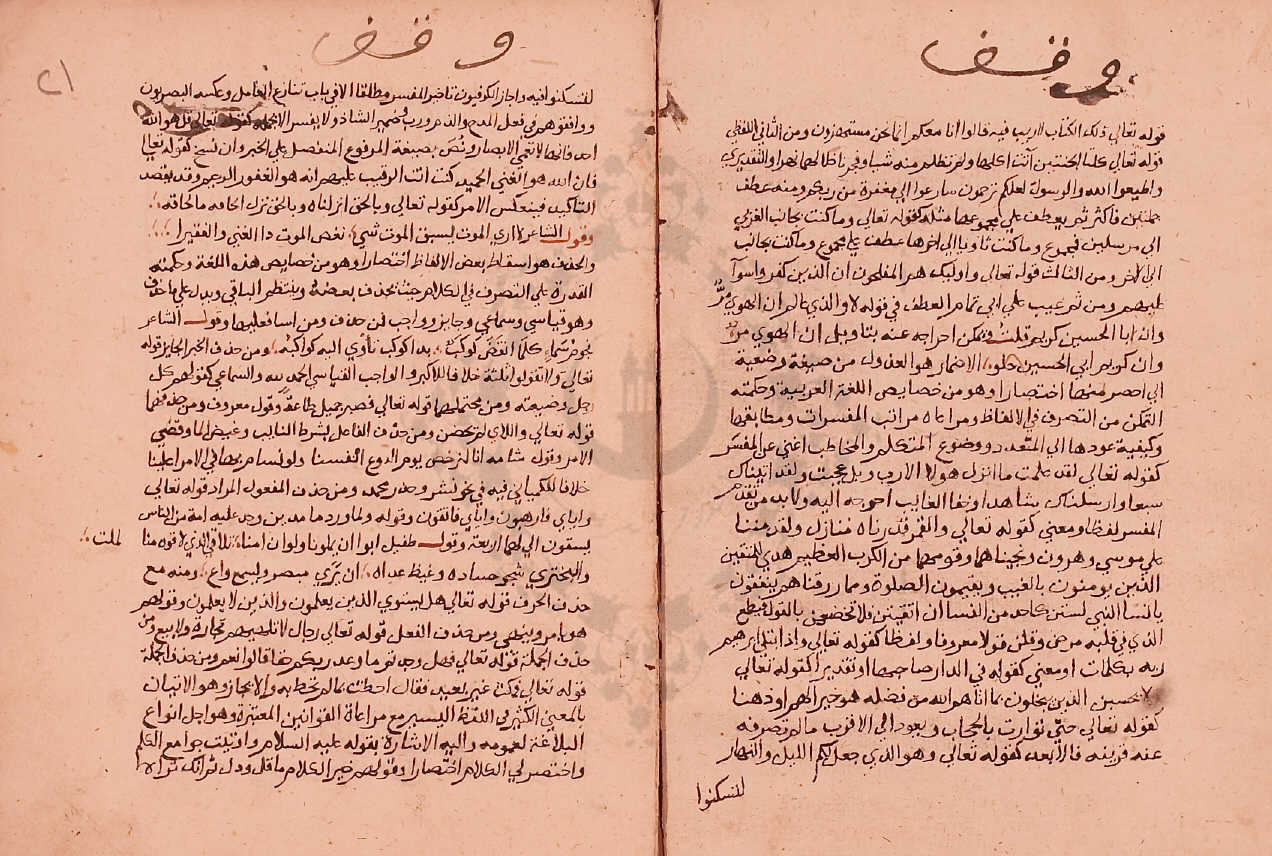 وقف
قوله تعالى ذلك الكتاب لا ريب فيه قالوا انا معكم انما نحن مستهزون ومن الثاني اللفظي
قوله تعالى كلتا الجنتين آتت اكلها ولم تظلم منه شيا وفجرنا خلالهما نهرا والتقديري
واطيعوا الله والرسول لعلكم ترحمون سارعوا الي مغفرة من ربكم ومنه عطف
جملتين فاكثر ثم يعطف علي مجموعها مثله كقوله تعالي وما كنت بجانب الغربي
الي مرسلين فمجموع وما كنت ثاويا الي اخرها عطف علي مجموع وما كنت بجانب
الي الاخر ومن الثالث قوله تعالي واوليك هم المفلحون ان الذين كفروا سوآ
عليهم ومن ثم عيب علي ابي تمام العطف في قوله لا والذي عالم ان الهوي مر
وان ابا الحسين كريم قلت ويمكن اخراجه عنه بتاويل ان الهوي مره
وان كويم ابي الحسين حلو الاضمار هو العدول من صيغة وضعية
الي اخصر منها اختصارا وهو من خصايص اللغة العربية وحكمته
التمكن من التصرف في الالفاظ ومراعاة مراتب المفسرات ومطابقها
وكيفية عودها الي المتعدد ووضوع المتكلم والمخاطب اغني عن المفسر
كقوله تعالي لقد علمت ما انزل هولا الا رب وبل عجبت ولقد اتيناك
سبعا وارسلناك شاهدا وخفا الغايب احوجه اليه ولا بد من تقدم
المفسر لفظا ومعني كقوله تعالي والقمر قدرناه منازل ولقد مننا
علي موسي وهرون ونجيناهما وقومهما من الكرب العظيم هدي للمتقين
الذين يومنون بالغيب ويقيمون الصلوة ومما رزقناهم ينفقون
يا نسا النبي لستن كاحد من النسا ان اتقيتن فلا تخضعن بالقول فيطمع
الذي في قلبه مرض وقلن قولا معروفا او لفظا كقوله تعالي واذ ابتلي ابرهيم
ربه بكلمات او معني كقوله في الدار صاحبها او تقديرا كقوله تعالي
لا تحسبن الذين يبخلون بما اتاهم الله من فضله هو خيرا لهم او ذهنا
كقوله تعالي حتي توارت بالحجاب ويعود الي الاقرب ما لم تصرفه
عنه قرينه فالابعد كقوله تعالي وهو الذي جعل لكم الليل والنهار
لتسكنوا
وقف
٢١
لتسكنوا فيه واجاز الكوفيون تاخير المفسر مطلقا الا في باب تنازع العامل وعكسه البصريون
ووافقوهم في فعل المدح والذم ورب وضمير الشان ولا يفسر الا بجمله كقوله تعالي قل هو الله
احد فانها لا تعمي الابصار ونص بصيغة المرفوع المنفصل علي الخبر وان نسخ كقوله تعالي
فان الله هو الغني الحميد كنت انت الرقيب عليهم انه هو الغفور الرحيم وقد يقصد
التاكيد فينعكس الامر كقوله تعالي وبالحق انزلناه وبالحق نزل الحاقه ما الحاقه
وقول الشاعر لا اري الموت يسبق الموت شي نغص الموت ذا الغني والفقيرا
والحذف هو اسقاط بعض الالفاظ اختصارا وهو من خصايص هذه اللغة وحكمته
القدرة علي التصرف في الكلام حيث يحذف بعضه وينتظم الباقي ويدل علي ما حذف
وهو قياسي وسماعي وجايز وواجب فمن حذف ومن اسا فعليها وقول الشاعر
نجوم سماء كلما انقض كوكب بدا كوكب تاوي اليه كواكبه ومن حذف الخبر الجايز قوله
تعالي ولا تقولوا ثلثة خلافا للاكبر والواجب القياسي الحمد لله والسماعي كقولهم كل
رجل وضيعته ومن محتملهما قوله تعالي فصبر جميل طاعة وقول معروف ومن حذفهما
قوله تعالي واللاي لم يحضن ومن حذف الفاعل بشرط النايب وغيض الما وقضي
الامر وقول شامه انا لنرخص يوم الروع انفسنا ولو نسام بها في الامن اغلينا
خلافا للكسائي فيه في نحو نشر وحذر محمد ومن حذف المفعول المراد قوله تعالي
واياي فارهبون واياي فاتقون وقوله ولما ورد ما مدين وجد عليه امة من الناس
يسقون الي لهما اربعة وقول طفيل ابوا ان يملونا ولو ان امنا تلاقي الذي لاقوه منا
لملت
والبحتري شجو حساده وغيظ عداه ان يري مبصر ويسمع واع ومنه مع
حذف الحرف قوله تعالي هل يستوي الذين يعلمون والذين لا يعلمون وقولهم
هو امر وينهي ومن حذف الفعل قوله تعالي رجال لا تلهيهم تجارة ولا بيع ومن
حذف الجملة قوله تعالي فهل وجدتم ما وعد ربكم حقا قالوا نعم ومن حذف الجملة
قوله تعالي فمكث غير بعيد فقال احطت بما لم تحط به والايجاز وهو الاتيان
بالمعني الكثير في اللفظ اليسير مع مراعاة القوانين المعتبرة وهو اجل انواع
البلاغة لعمومه واليه الاشارة بقوله عليه السلام واوتيت جوامع الكلم
واختصر لي الكلام اختصارا وقولهم خير الكلام ما قل ودل